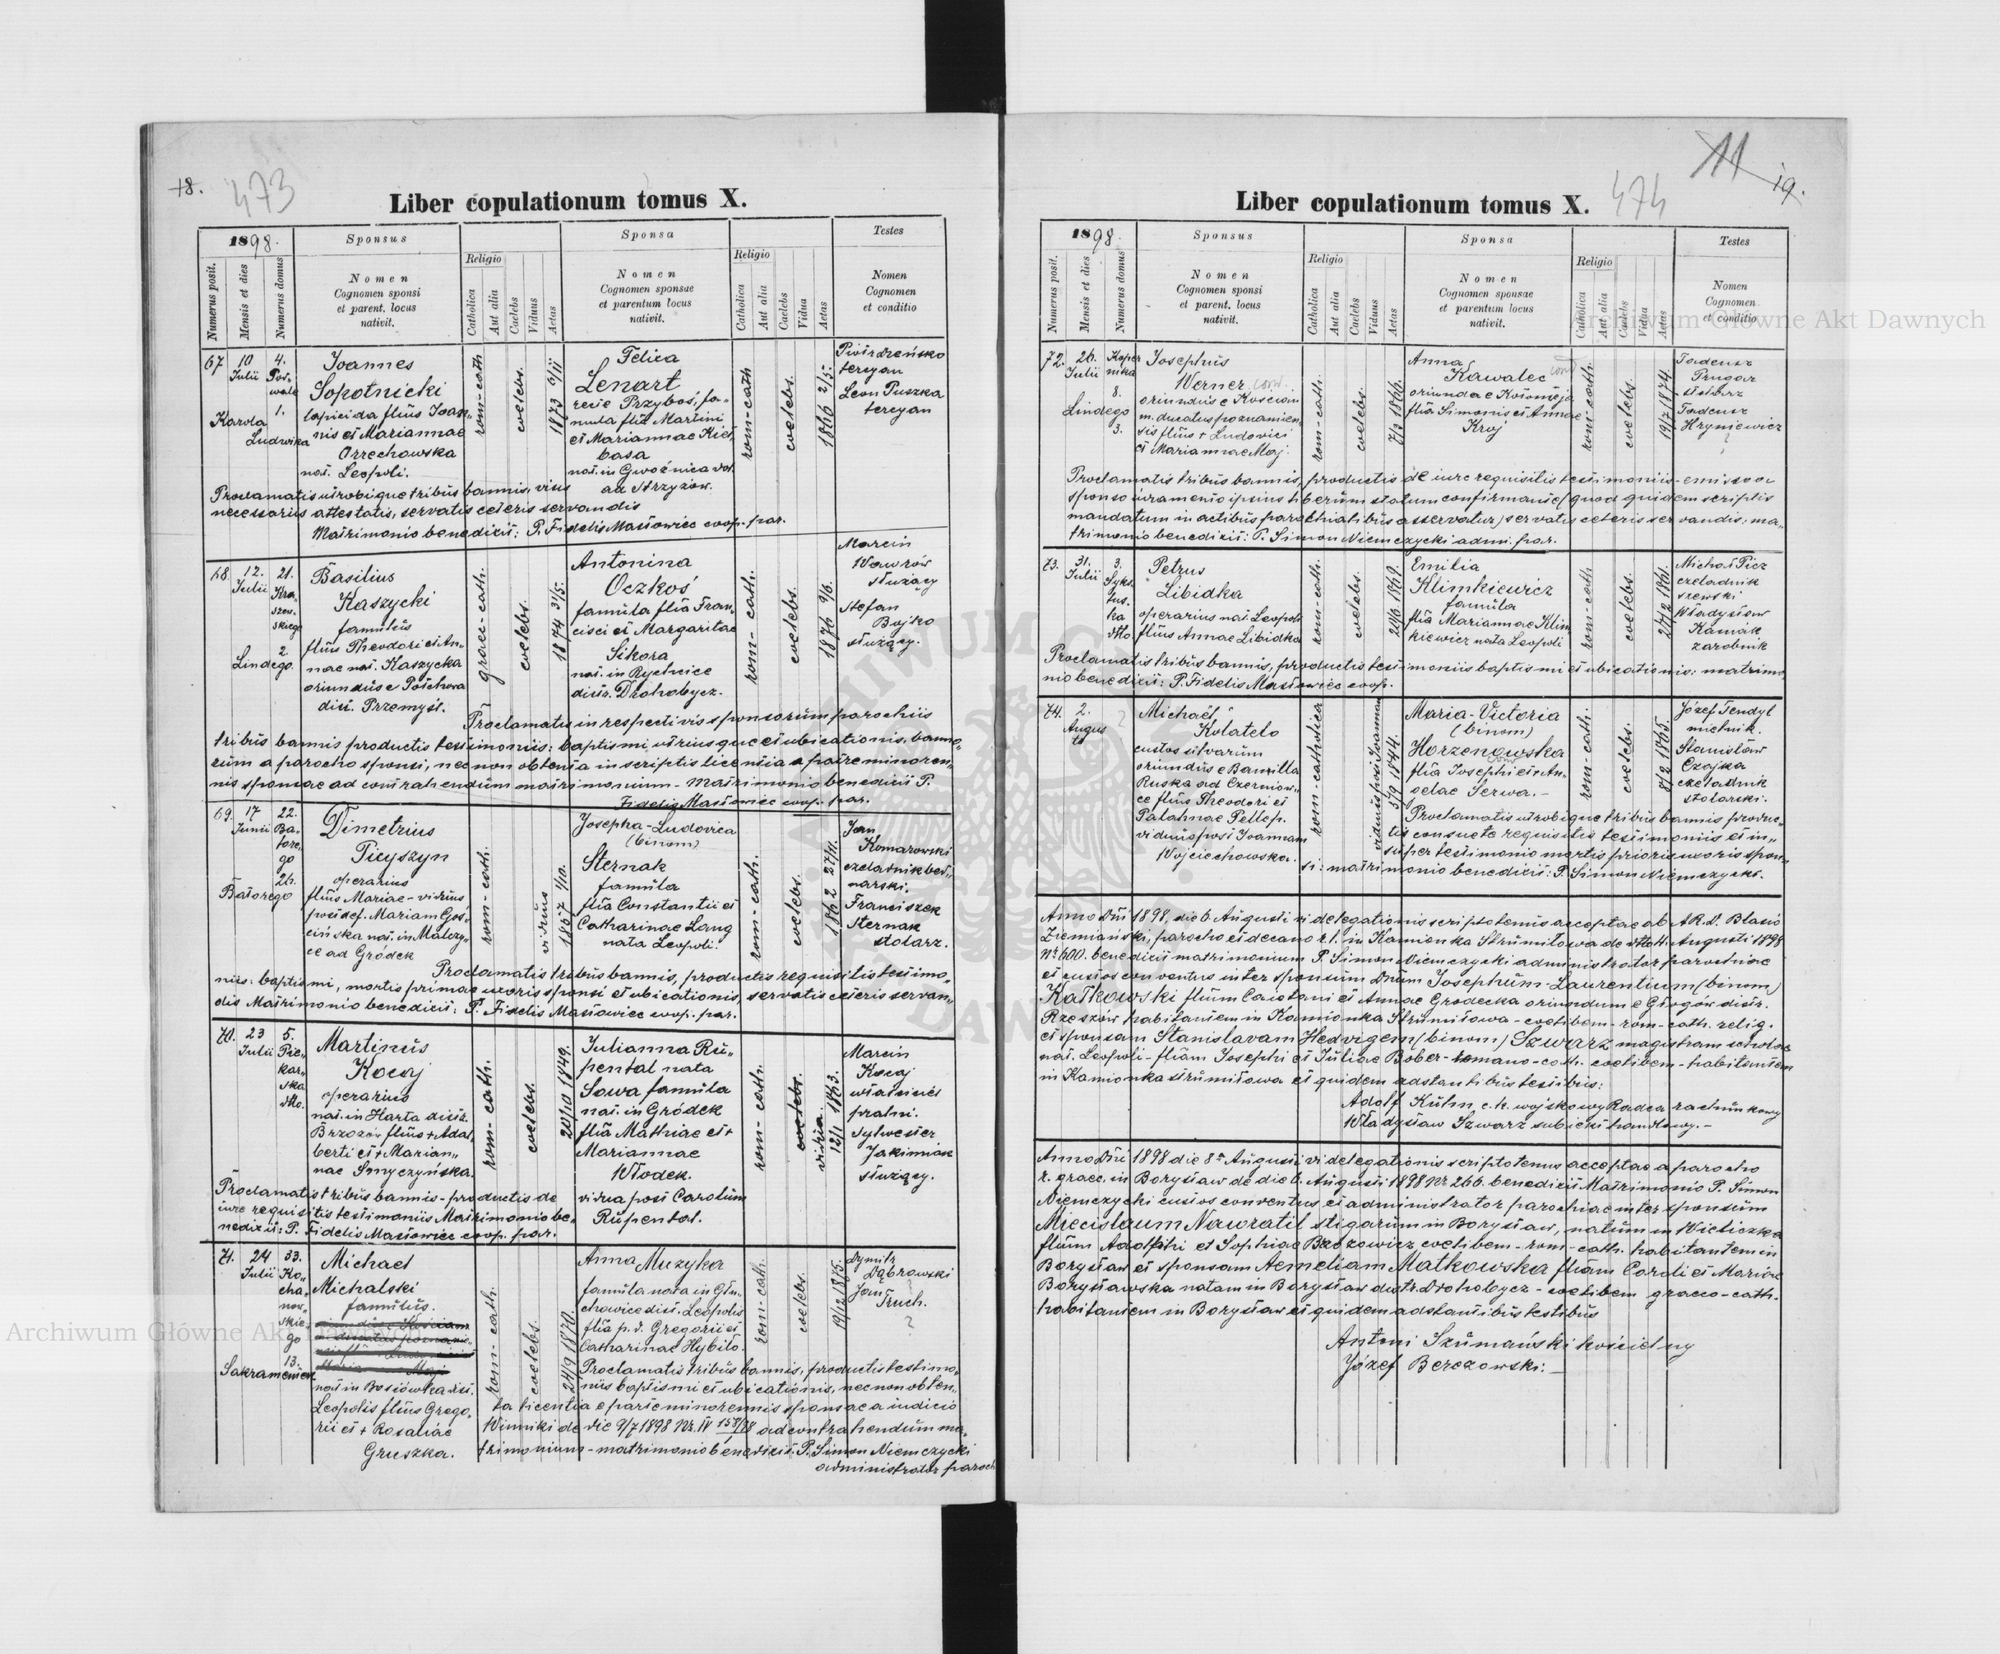 18.
473
Liber copulationum tomus X.
1898.
Sponsus
Sponsa
Testes
Numerus posit.
Mensis et dies
Numerus domus
Nomen
Cognomen sponsi
et parent. locus
nativit.
Religio
Catholica
Aut alia
Caelebs
Viduus
Aetas
Nomen
Cognomen sponsae
et parentum locus
nativit.
Religio
Catholica
Aut alia
Caelebs
Vidua
Aetas
Nomen
Cognomen
et conditio
67
10
Julii
4.
1.
Karola
Ludwika
Joannes
Sopotnicki
lapicida filius Joan-
nis et Mariannae
Orzechowska
nat. Leopoli.
rom-cath
coelebs.
1873
Felica
Lenart
recte Przyboś, fa-
mula filia Martini
et Mariannae Kieł
basa
nat. in Gwoźnica
ad Strzyżów.
rom-cath
coelebs.
1866 2/5.
tercyan
Leon Puszka
tercyan
Proclamatis utrobique tribus bannis, visis
necessariis attestatis, servatis ceteris servandis
Matrimonio benedixit: P. Fidelis Masłowiec coop. par.
68.
12.
Julii
21.
Kra-
szew-
skiego
2
Lindego.
Basilius
Kaszycki
famulus
filius Theodori et An-
nae nat. Kaszycka
oriundus e
distr. Przemyśl.
graec-cath.
coelebs.
1874 31/5.
Antonina
Oczkoś
famula filia Fran-
cisci et Margaritae
Sikora
nat. in Rychcice
distr. Drohobycz.
rom-cath.
coelebs.
1876 9/6.
Marcin
Wawrów
służący
Stefan
Bojko
służący.
Proclamatis in respectivis sponsorum parochiis
tribus bannis productis testimoniis: baptismi utriusque et ubicationis, banno-
rum a parocho sponsi, nec non obtenta in scriptis licentia a patre minoren-
nis sponsae ad contrahendum matrimonium - Matrimonio benedixit P.
Fidelis Masłowiec coop. par.
69.
17
Junii
22.
Ba-
tore-
go
26.
Batorego
Dimetrius
Picyszyn
operarius
filius Mariae - viduus
post def. Mariam Goś-
cińska nat. in Malczy-
ce ad Gródek
rom-cath.
viduus
1857 1/10.
Josepha-Ludovica
(binom)
Sternak
famula
filia Constantii et
Catharinae Lang
nata Leopoli.
rom-cath.
coelebs.
1862 27/11.
Jan
Komarowski
czeladnik bed-
narski.
Franciszek
Sternak
stolarz.
Proclamatis tribus bannis, productis requisitis testimo-
niis: baptismi, mortis primae uxoris sponsi et ubicationis, servatis ceteris servan-
dis Matrimonio benedixit: P. Fidelis Masłowiec coop. par.
70.
23
Julii
5.
Pie-
kar-
ska
dtto.
Martinus
Kocaj
operarius
nat. in Harta distr.
Brzozów filius + Adal
berti et + Marian-
nae Smyczyńska.
rom-cath.
coelebs.
20/10 1849.
Julianna Ru-
pental nata
Sowa famula
nat. in Gródek
filia Mathiae et +
Mariannae
Włodek.
vidua post Carolum
Rupental.
rom-cath.
coelebs.
vidua.
12/1 1843.
Marcin
Kocaj
właściciel
pralni.
Sylwester
Jakimiak
służący.
Proclamatis tribus bannis - productis de
iure requisitis testimoniis Matrimonio be-
nedixit: P. Fidelis Masłowiec coop. par.
71.
24
Julii
33.
Ko-
cha-
now-
skie-
go
13.
Sakramentek
Michael
Michalski
famulus.
nat in
Leopolis filius Grego-
rii et + Rosaliae
Gruszka.
rom-cath.
coelebs.
24/9 1870.
Anna Muzyka
famula nata in Głu-
chowice dist. Leopolis
filia p. d. Gregorii et
Catharinae Hybiło.
rom-cath.
coelebs.
19/12 1875.
Dymitr
Dąbrowski
Jan
Truch.
?
Proclamatis tribus bannis, productis testimo-
niis baptismi et ubicationis, nec non obten-
ta licentia e parte minorennis sponsae a iudicio
Winniki de die 9/7 1898 Nr. IV 158/98 ad contrahendum ma-
trimonium - matrimonio benedixit: P. Simon Niemczycki
administrator paroch.
11
19.
474
Liber copulationum tomus X.
1898.
Sponsus
Sponsa
Testes
Numerus posit.
Mensis et dies
Numerus domus
Nomen
Cognomen sponsi
et parent. locus
nativit.
Religio
Catholica
Aut alia
Caelebs
Viduus
Aetas
Nomen
Cognomen sponsae
et parentum locus
nativit.
Religio
Catholica
Aut alia
Caelebs
Vidua
Aetas
Nomen
Cognomen
et conditio
72.
26.
Julii
Koper
nika
8.
Lindego
3.
Josephus
Werner
oriundus e Kościan
m. ducatus poznanien-
sis filius + Ludovici
et Mariannae Maj.
rom-cath.
coelebs.
7/3 1866.
Anna
Kawalec
oriunda e Kołomyja
filia Simonis et Annae
Kroj
rom-cath.
coelebs.
19/7 1874.
Tadeusz
Prugar
Tadeusz
Hryniewicz
?
Proclamatis tribus bannis, productis de iure requisitis testimoniis - emisso a
sponso iuramento ipsius liberum statum confirmante (quod quidem scriptis
mandatum in actibus parochialibus asservatur) servatis ceteris servandis: ma-
trimonio benedixit: P. Simon Niemczycki adm. par.
73.
31.
Julii
3.
Syks-
tus-
ka
dtto
Petrus
Libidka
operarius nat. Leopoli
filius Annae Libidka
rom-cath.
coelebs.
29/6 1869.
Emilia
Klimkiewicz
famula
filia Mariannae Klim
kiewicz nata Leopoli
rom-cath.
coelebs.
27/2 1861.
Michał Picz
czeladnik
szewski
Władysław
Kaniak
zarobnik
Proclamatis tribus bannis, productis testimoniis baptismi et ubicationis: matrimo
nio benedixit: P. Fidelis Masłowiec coop.
74.
2.
Augus
ti
Michael
Kolatelo
custos silvarum
oriundus e Banilla
Ruska ad Czerniow-
ce filius Theodori et
Palahnae Pellep.
viduus post Joannam
Wojciechowska.
rom-catholica
viduus post Joannam
5/9 1844.
Maria-Victoria
(binom)
Horzenowska
filia Josephi et An-
gelae Serwa.-
rom-cath.
coelebs.
8/2 1865.
Józef Tendyl
mielnik.
Stanisław
Czajka
czeladnik
stolarski.
Proclamatis utrobique tribus bannis produc-
tis consuete requisitis testimoniis et in-
super testimonio mortis prioris uxoris spon-
si: matrimonio benedixit: P. Simon Niemczycki.
Anno Dni 1898, die 6 Augusti vi delegationis scriptotenus acceptae ab A.R.d. Blasio
Ziemiański, parocho et decano r.l. in Kamionka Strumiłowa de dtto 4. Augusti 1898
Nr 600. benedixit matrimonium P. Simon Niemczycki administrator parochiae
et custos conventus inter sponsum Dnum Josephum-Laurentium (binom)
Katkowski filium Caietani et Annae Grodecka oriundum e Głogów distr.
Rzeszów habitantem in Kamionka Strumiłowa - coelibem - rom-cath. relig.
et sponsam Stanislavam Hedvigem (binom) Szwarz magistram scholae
nat. Leopoli - filiam Josephi et Juliae Bober - romano-cath. coelibem - habitantem
in Kamionka strumiłowa et quidem adstantibus testibus:
Adolf Kühn c.k. wojskowy Radca rachunkowy
Władysław Szwarz subiekt handlowy.-
Anno Dni 1898 die 8a Augusti vi delegationis scriptotenus acceptae a parocho
r. graec. in Borysław de die 6. Augusti 1898 Nr 266. benedixit Matrimonio P. Simon
Niemczycki custos conventus et administrator parochiae inter sponsum
Miecislaum Nawratil stigarum in Borysław, natum in Wieliczka
filium Adolphi et Sophiae Brzozowicz coelibem - rom-cath. habitantem in
Borysław et sponsam Aemeliam Matkowska filiam Caroli et Mariae
Borysławska natam in Borysław distr. Drohobycz - coelibem graeco-cath.
habitantem in Borysław et quidem adstantibus testibus
Antoni Szumański kościelny
Józef Berezowski:-
Archiwum Główne Akt Dawnych
Archiwum Główne Akt Dawnych